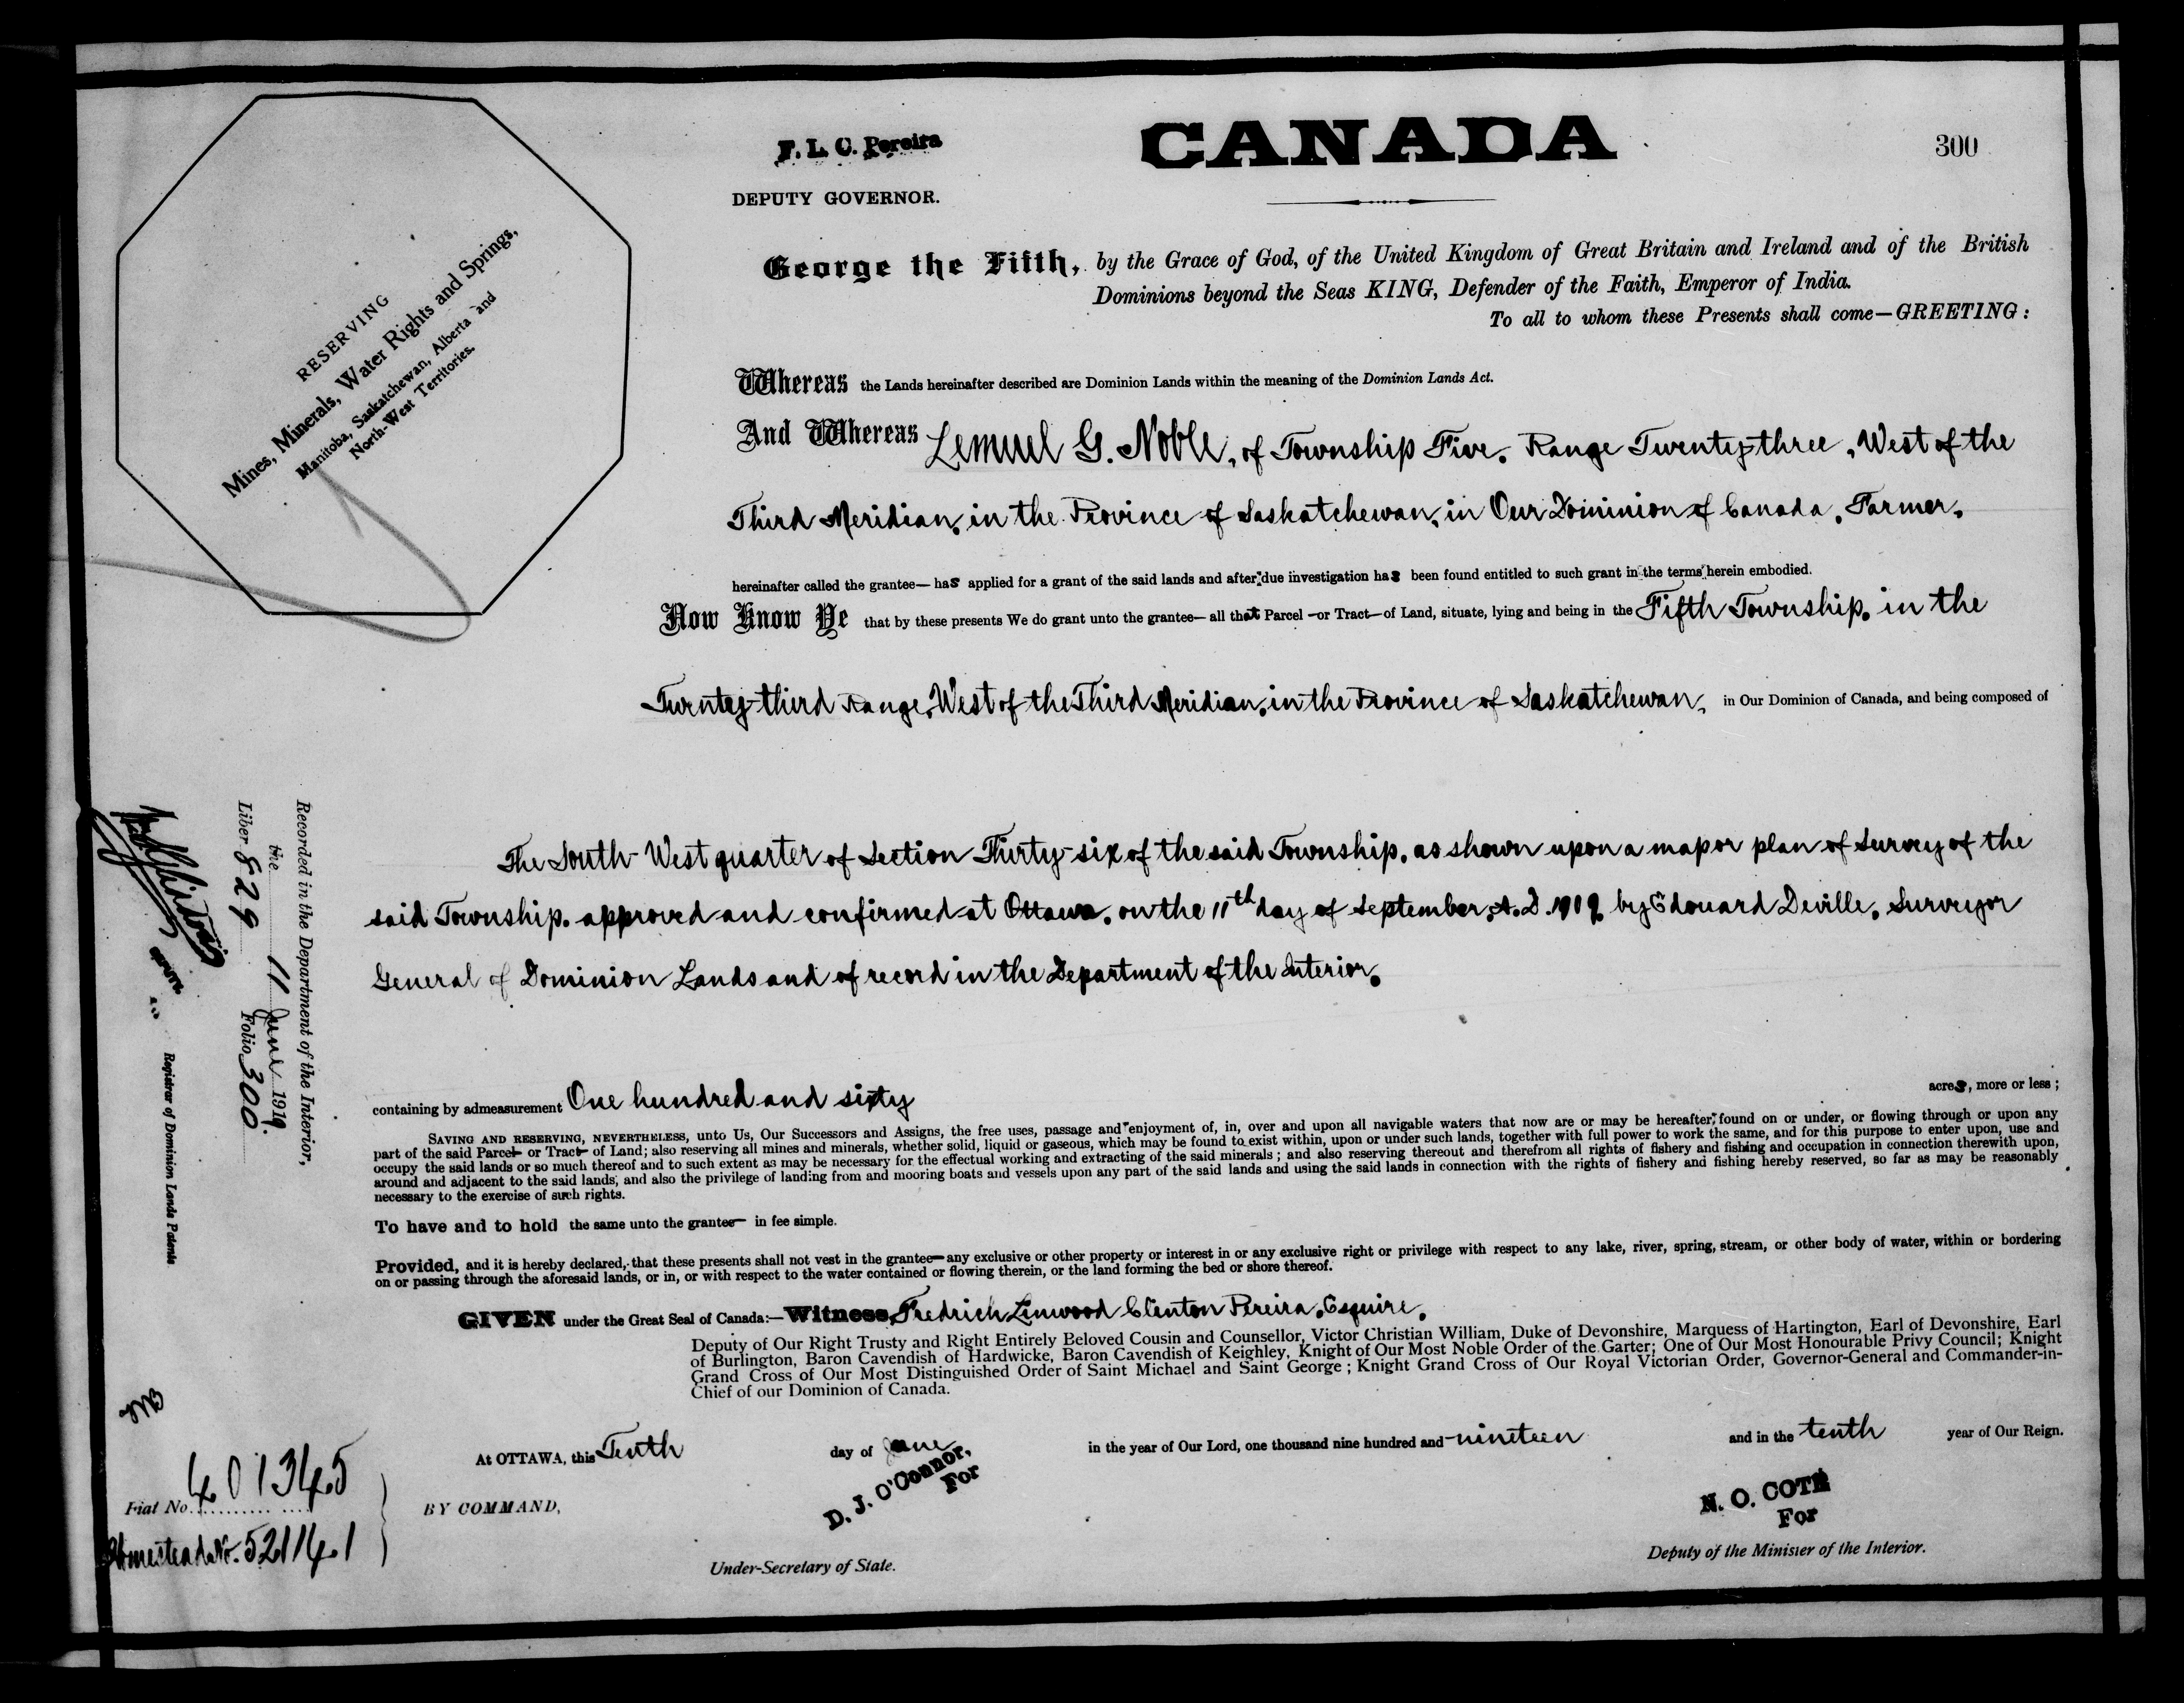 F. L. C. Pereira
DEPUTY GOVERNOR.
CANADA
300
RESERVING
Mines, Minerals, Water Rights and Springs,
Manitoba, Saskatchewan, Alberta and
North-West Territories.
George the Fifth, by the Grace of God, of the United Kingdom of Great Britain and Ireland and of the British
Dominions beyond the Seas KING, Defender of the Faith, Emperor of India.
To all to whom these Presents shall come—GREETING:
Whereas the Lands hereinafter described are Dominion Lands within the meaning of the Dominion Lands Act.
And Whereas Lemuel G. Noble, of Township Five, Range Twenty-three, West of the
Third Meridian, in the Province of Saskatchewan, in Our Dominion of Canada, Farmer,
hereinafter called the grantee— has applied for a grant of the said lands and after due investigation has been found entitled to such grant in the terms herein embodied.
Now Know Ye that by these presents We do grant unto the grantee— all that Parcel —or Tract—of Land, situate, lying and being in the Fifth Township, in the
Twenty-third Range, West of the Third Meridian, in the Province of Saskatchewan, in Our Dominion of Canada, and being composed of
The South-West quarter of Section Thirty-six of the said Township, as shown upon a map or plan of survey of the
said Township, approved and confirmed at Ottawa, on the 11th day of September, A.D. 1912, by Edouard Deville, Surveyor
General of Dominion Lands and of record in the Department of the Interior,
containing by admeasurement One hundred and sixty acres, more or less;
SAVING AND RESERVING, NEVERTHELESS, unto Us, Our Successors and Assigns, the free uses, passage and enjoyment of, in, over and upon all navigable waters that now are or may be hereafter found on or under, or flowing through or upon any
part of the said Parcel— or Tract— of Land; also reserving all mines and minerals, whether solid, liquid or gaseous, which may be found to exist within, upon or under such lands, together with full power to work the same, and for this purpose to enter upon, use and
occupy the said lands or so much thereof and to such extent as may be necessary for the effectual working and extracting of the said minerals; and also reserving thereout and therefrom all rights of fishery and fishing and occupation in connection therewith upon,
around and adjacent to the said lands, and also the privilege of landing from and mooring boats and vessels upon any part of the said lands and using the said lands in connection with the rights of fishery and fishing hereby reserved, so far as may be reasonably
necessary to the exercise of such rights.
To have and to hold the same unto the grantee— in fee simple.
Provided, and it is hereby declared, that these presents shall not vest in the grantee—any exclusive or other property or interest in or any exclusive right or privilege with respect to any lake, river, spring, stream, or other body of water, within or bordering
on or passing through the aforesaid lands, or in, or with respect to the water contained or flowing therein, or the land forming the bed or shore thereof.
GIVEN under the Great Seal of Canada:—Witness, Fredrich Linwood Clinton Pereira, Esquire,
Deputy of Our Right Trusty and Right Entirely Beloved Cousin and Counsellor, Victor Christian William, Duke of Devonshire, Marquess of Hartington, Earl of Devonshire, Earl
of Burlington, Baron Cavendish of Hardwicke, Baron Cavendish of Keighley, Knight of Our Most Noble Order of the Garter; One of Our Most Honourable Privy Council; Knight
Grand Cross of Our Most Distinguished Order of Saint Michael and Saint George; Knight Grand Cross of Our Royal Victorian Order, Governor-General and Commander-in-
Chief of our Dominion of Canada.
At OTTAWA, this Tenth day of June in the year of Our Lord, one thousand nine hundred and nineteen and in the tenth year of Our Reign.
BY COMMAND,
D. J. O'Connor,
For
Under-Secretary of State.
N. O. COTÉ
For
Deputy of the Minister of the Interior.
Recorded in the Department of the Interior,
the 11 June 1919.
Liber 829 Folio 300
Registrar of Dominion Lands Patents
MB
Fiat No. 401345
Homestead No. 521141